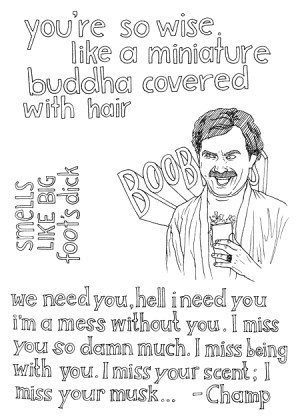 you're so wise.
like a miniature
buddha covered
with hair
BOOB
smells
LIKE BIG
foot's dick
we need you, hell i need you
i'm a mess without you. I miss
you so damn much. I miss being
with you. I miss your scent; I
miss your musk... - Champ